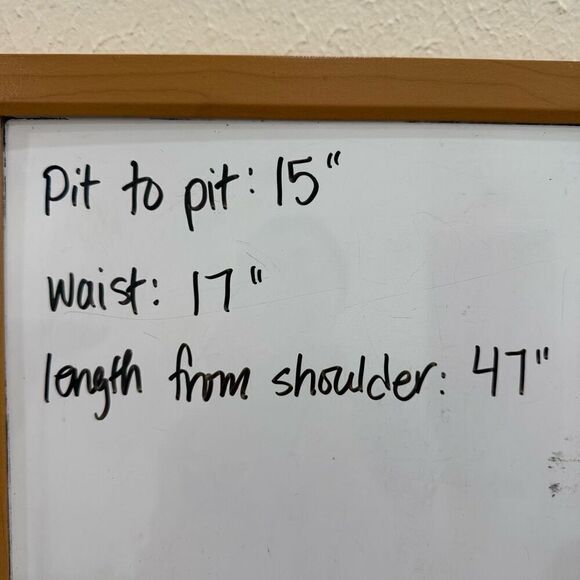 Pit to pit: 15"
waist: 17"
length from shoulder: 47"